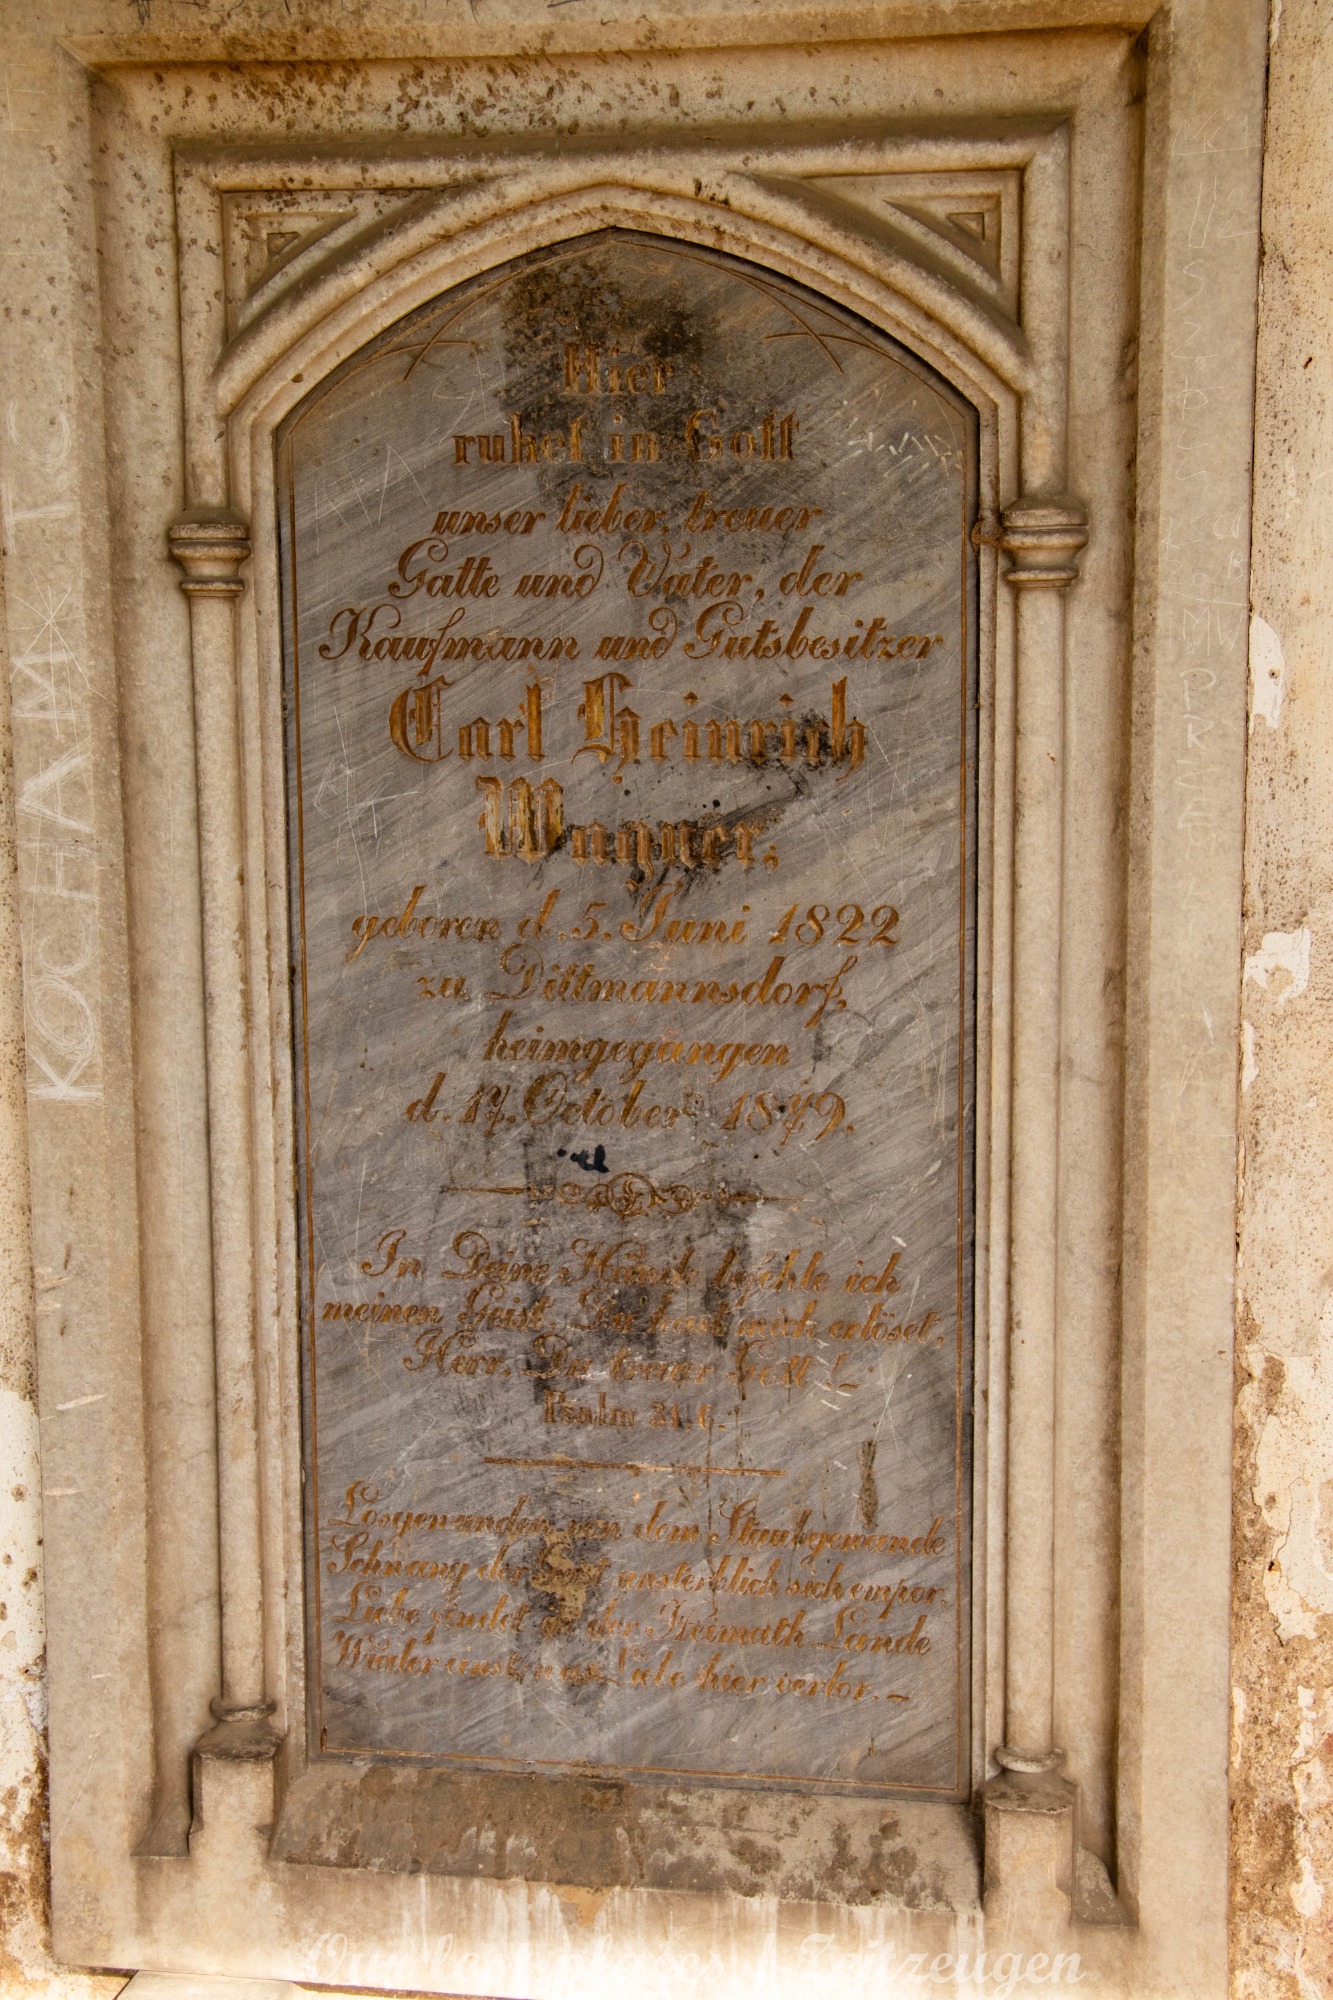 Hier
ruhet in Gott
unser lieber, treuer
Gatte und Vater, der
Kaufmann und Gutsbesitzer
Carl Heinrich
Wagner,
geboren d. 5. Juni 1822
zu Dittmannsdorf,
heimgegangen
d. 17. October 1879.
In Deine Hände befehle ich
meinen Geist. Du hast mich erlöset,
Herr, Du treuer Gott! –
Psalm 31. 6.
Losgewunden von dem Staubgewande
Schwang der Geist unsterblich sich empor.
Liebe findet in der Heimath Lande
Wieder einst, was Liebe hier verlor. –
KOCHAM TC
Our lost places / Zeitzeugen